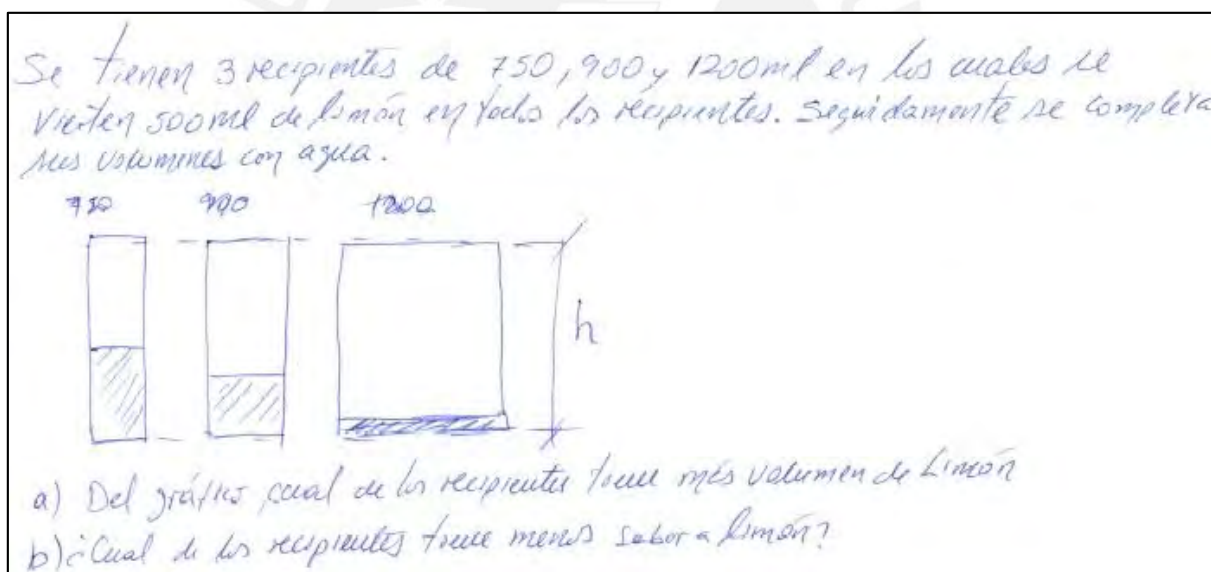 Se tienen 3 recipientes de 750, 900 y 1200ml en los cuales se
vierten 500ml de limón en todos los recipientes. Seguidamente se completa
sus volumenes con agua.
750 900 1200
h
a) Del gráfico cual de los recipientes tiene más volumen de Limón
b) ¿Cual de los recipientes tiene menos sabor a limón?